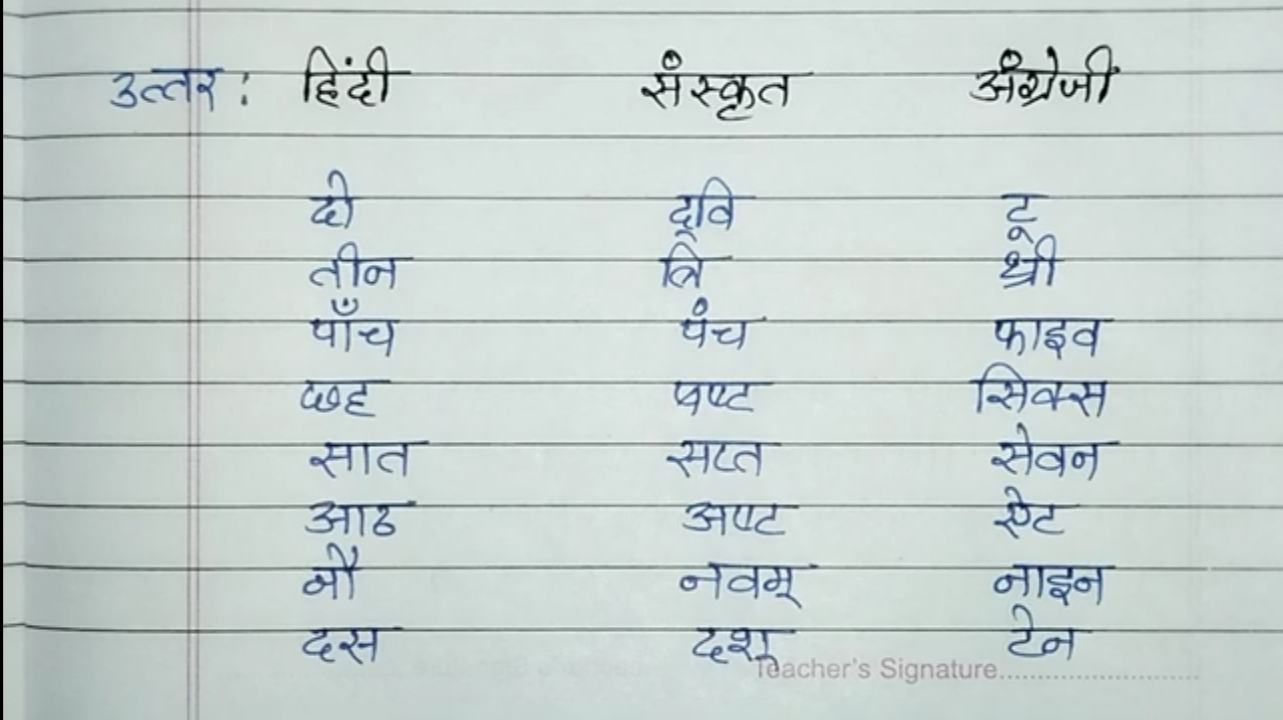 उत्तर : हिंदी संस्कृत अंग्रेजी
दो द्वि टू
तीन त्रि थ्री
पाँच पंच फाइव
छह षष्ट सिक्स
सात सप्त सेवन
आठ अष्ट ऐट
नौ नवम् नाइन
दस दश् टेन
Teacher's Signature..............................